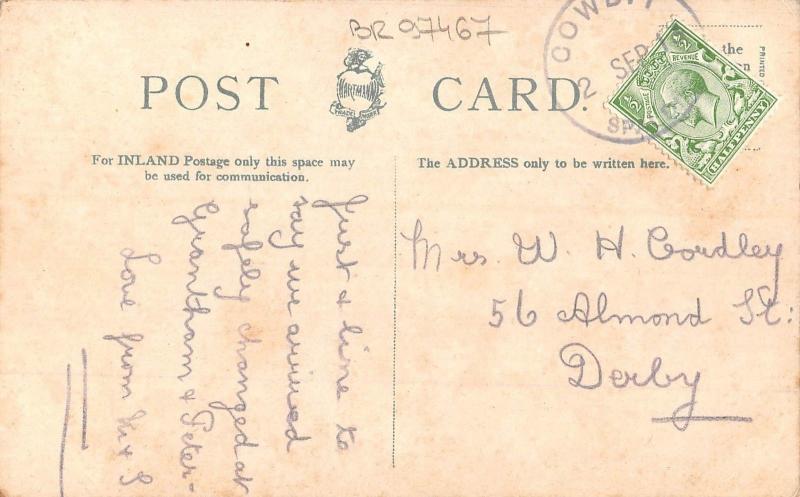 BR 97467
POST CARD.
WARTMANN
TRADE MARK
COWBIT
2 SEP
SPA
½ REVENUE
POSTAGE
½
HALFPENNY
the
en
PRINTED
For INLAND Postage only this space may
be used for communication.
The ADDRESS only to be written here.
Just a line to
say we arrived
safely changed at
Grantham & Peter-
Love from
Mrs. W. H. Cordley
56 Almond St:
Derby